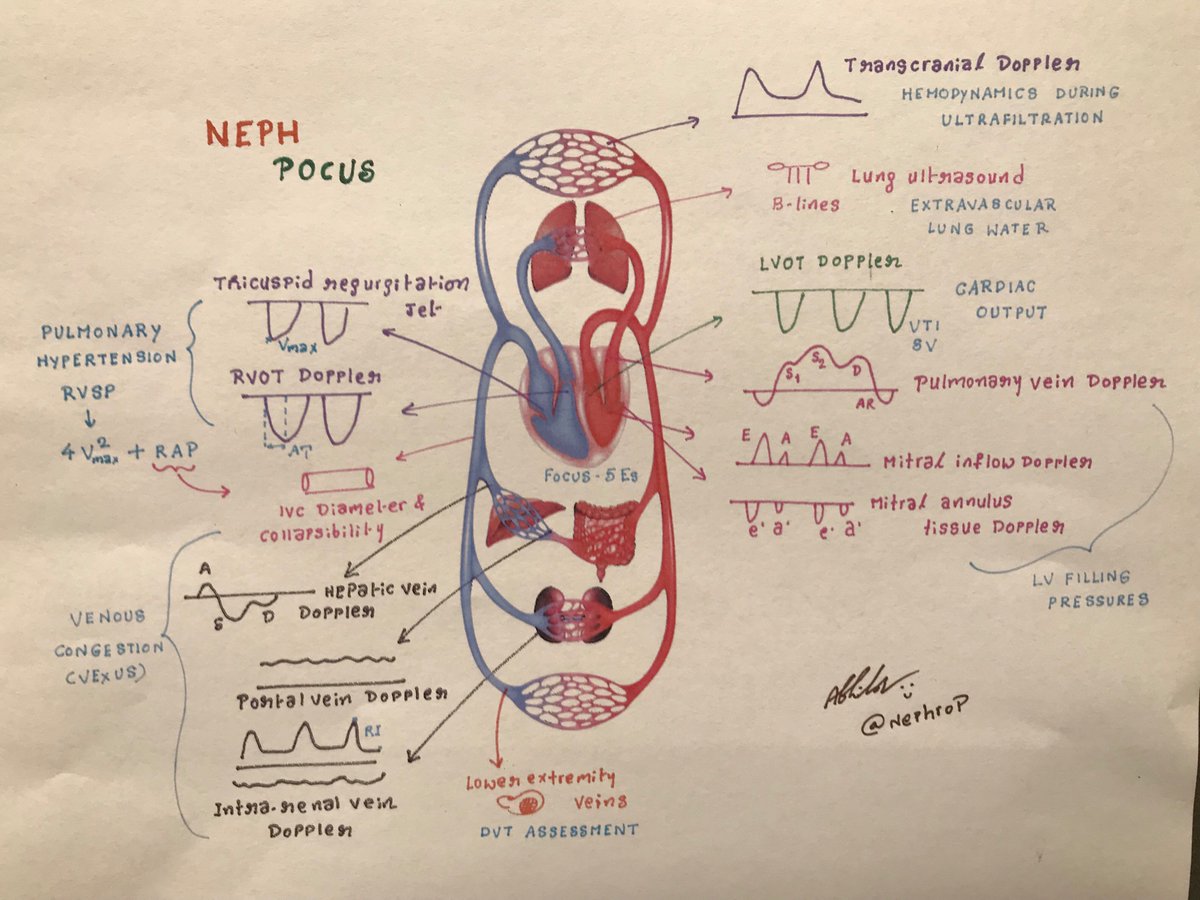 NEPH
POCUS
Transcranial Doppler
HEMODYNAMICS DURING
ULTRAFILTRATION
Lung ultrasound
B-lines
EXTRAVASCULAR
LUNG WATER
LVOT Doppler
CARDIAC
OUTPUT
VTI
SV
S1 S2 D
AR
Pulmonary vein Doppler
E A E A
Mitral inflow Doppler
e' a' e' a'
Mitral annulus
tissue Doppler
LV FILLING
PRESSURES
Tricuspid regurgitation
Jet
Vmax
PULMONARY
HYPERTENSION
RVSP
4 V²max + RAP
RVOT Doppler
AT
IVC Diameter &
collapsibility
FOCUS - 5 Es
VENOUS
CONGESTION
(VExUS)
A
S D
Hepatic vein
Doppler
Portal vein Doppler
RI
Intra-renal vein
Doppler
Lower extremity
veins
DVT ASSESSMENT
@NephroP